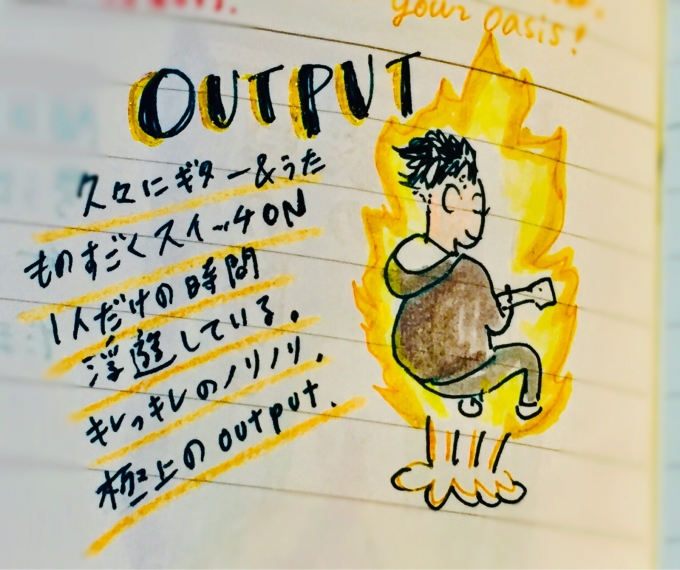 your oasis!
OUTPUT
久々にギター&うた
ものすごくスイッチON
1人だけの時間
浮遊している。
キレっキレのノリノリ.
極上のoutput.